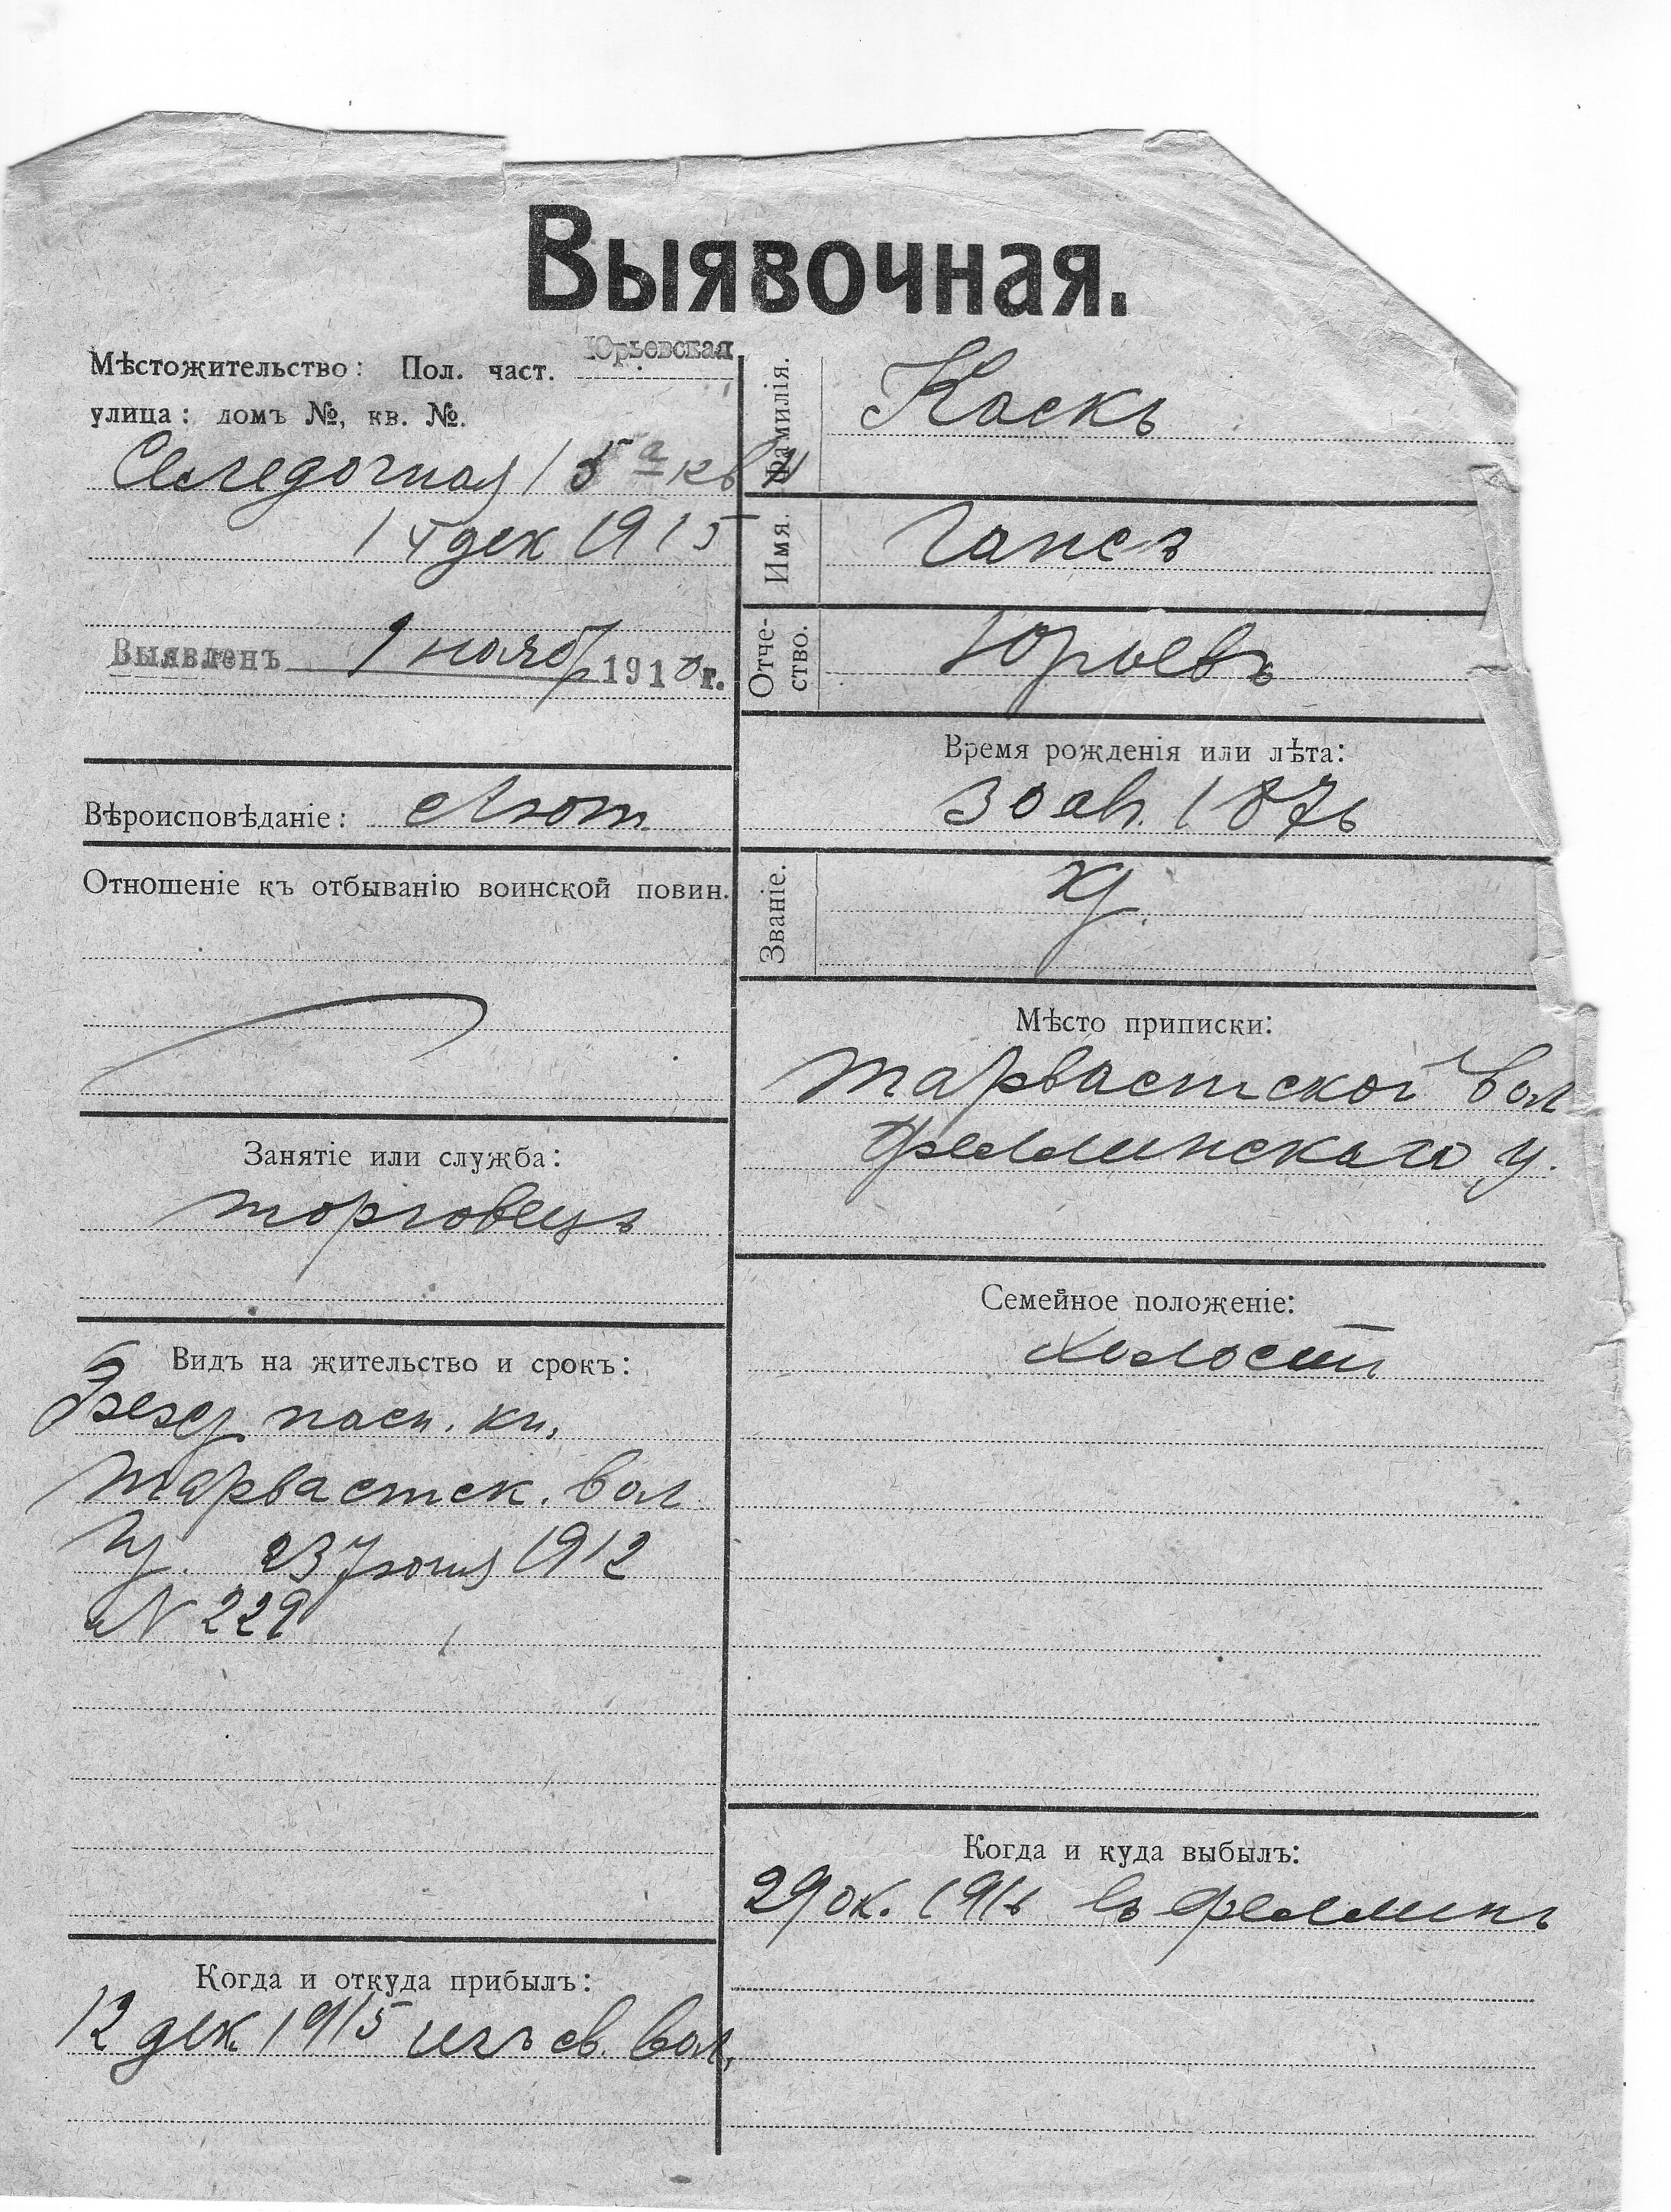 Выявочная.
Мѣстожительство: Пол. част. Юрьевская
улица: домъ №, кв. №.
Селедочная 15а кв
14 дек 1915
Выявленъ 1 нояб 1916 г.
Вѣроисповѣданіе: Лют.
Отношеніе къ отбыванію воинской повин.
Занятіе или служба:
торговецъ
Видъ на жительство и срокъ:
Безср пасп. кн.
Тарвастск. вол
23 Іюня 1912
N 229
Когда и откуда прибылъ:
12 дек 1915 изъ св. вол.
Фамилія. Каскъ
Имя. Гансъ
Отче-
ство. Юрьевъ
Время рожденія или лѣта:
30 ав. 1876
Званіе. кр.
Мѣсто приписки:
Тарвастской вол
Феллинскаго у.
Семейное положеніе:
холостъ
Когда и куда выбылъ:
29 ок. 1916 въ Феллинъ